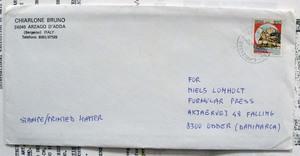 CHIARLONE BRUNO
24040 ARZAGO D'ADDA
(Bergamo) ITALY
FOR
NIELS LOMHOLT
FORMULAR PRESS
AKJAERVEJ 48 FALLING
8300 ODDER (DANIMARCA)
STAMPE/PRINTED MATTER